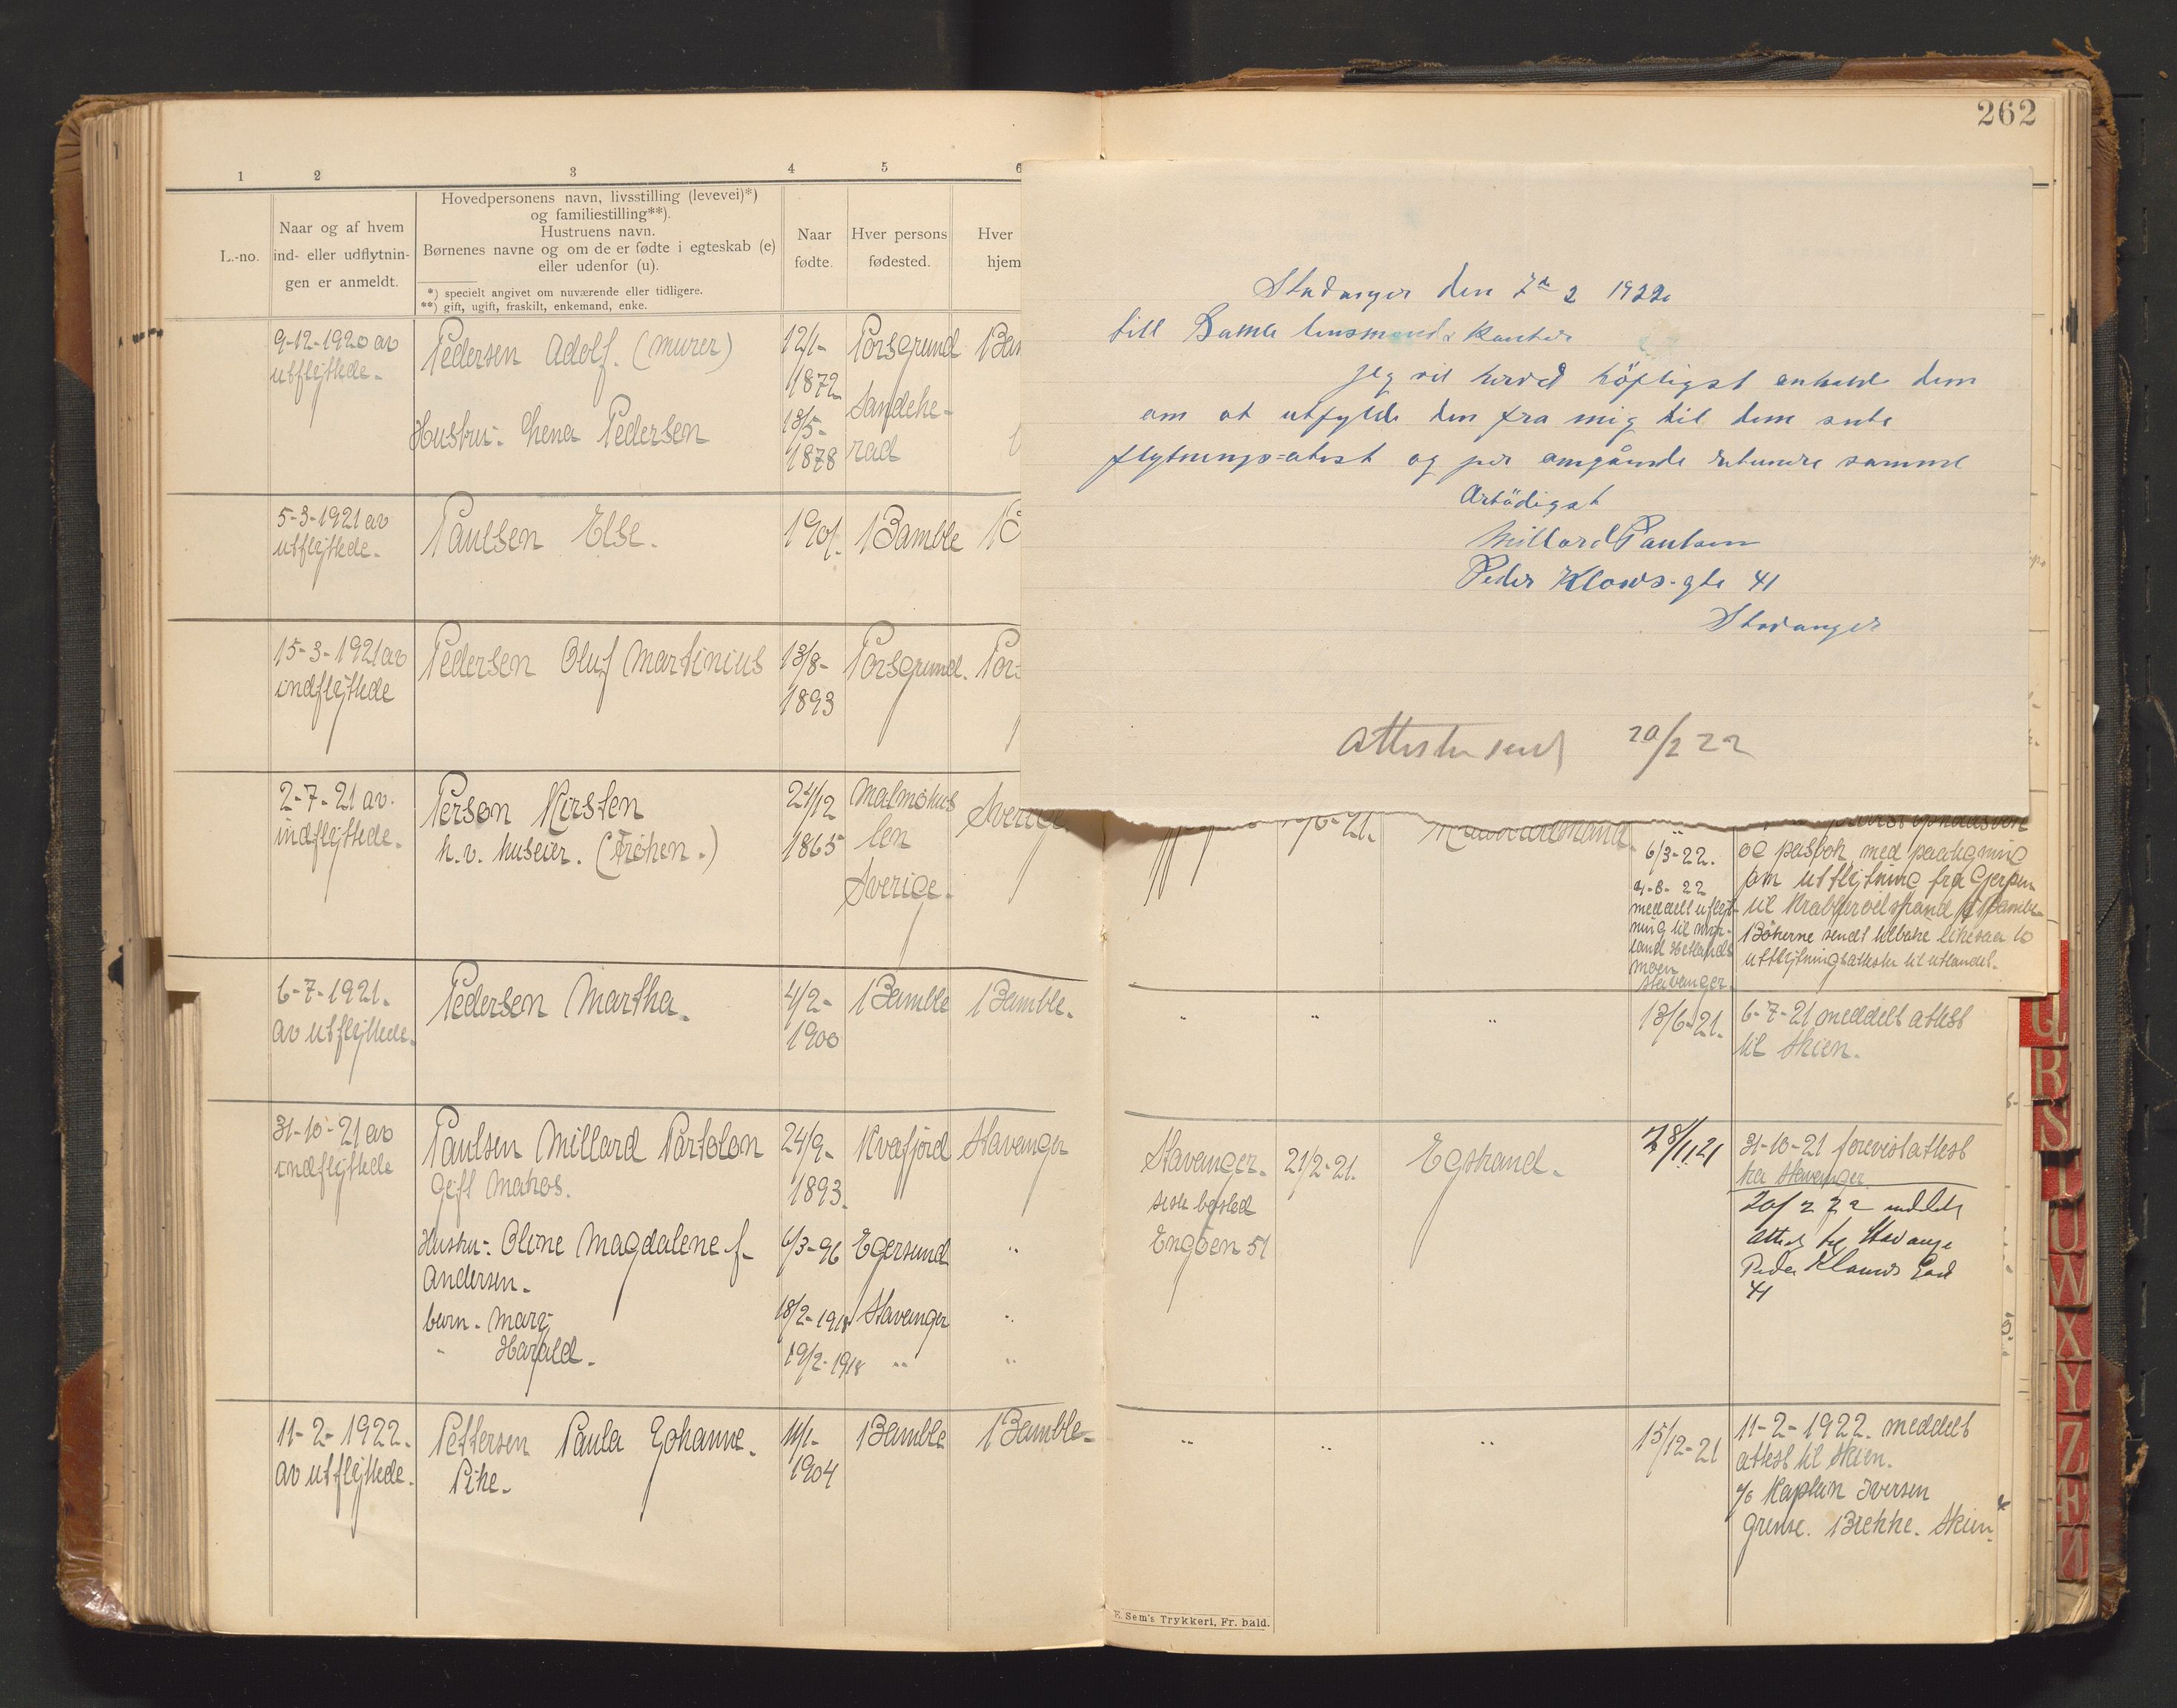 262
1 2 3 4 5 6
L.-no.
Naar og af hvem
ind- eller udflytnin-
gen er anmeldt.
Hovedpersonens navn, livsstilling (levevei)*)
og familiestilling**).
Hustruens navn.
Børnenes navne og om de er fødte i egteskab (e)
eller udenfor (u).
*) specielt angivet om nuværende eller tidligere.
**) gift, ugift, fraskilt, enkemand, enke.
Naar
fødte.
Hver persons
fødested.
Hver
hjem
9-12-1920 av
utflyttede.
Pedersen Adolf. (Murer)
12/1-
1872
Porsgrund
Hustru: Lena Pedersen
13/5-
1878
Sandehe-
rad
5-3-1921 av
utflyttede.
Paulsen Else.
1901.
Bamble
15-3-1921 av
indflyttede
Pedersen Oluf Martinius
13/8-
1893
Porsgrund.
2-7-21 av.
indflyttede.
Person Kirsten
h.v. huseier. (Frøken.)
24/12
1865
Malmøhus
len
Sverige.
Sverige
6-7-1921.
av utflyttede.
Pedersen Martha.
4/2-
1900
Bamble
Bamble.
31-10-21 av
indflyttede
Paulsen Millard Partolon
Gift Matros.
24/9-
1893.
Kvæfjord
Stavanger
Hustru: Oline Magdalene f-
Andersen.
6/3-96
Egersund
"
barn. Mary
18/2-1918
Stavanger
"
" Harald.
19/2-1918
"
"
11-2-1922.
av utflyttede.
Pettersen Paula Johanne.
Pike.
11/1-
1904
Bamble
Bamble-
Stavanger den 7de 2 1922
till Bamle lensmends Kontor
Jeg vil herved höfligst anholde dem
om at utfylde den fra mig til dem sente
flytnings=atest og per omgående returnere samme
Arbödigst
Millard Paulsen
Peder Klows-gte 41
Stavanger
Attester sendt 20/2 22
6/3-22.
4-8-22
meddelt utflyt-
ning til
Stavanger.
og pasbok med paategning
om utflytning fra Gjerpen
til Krabberødstrand i Bamble
Bøkerne sendt tilbake likesaa to
utflytningsattester til utlandet.
" " "
13/6-21.
6-7-21 meddelt attest
til Skien.
Stavanger.
siste bosted
Engøen 51
21/2-21.
Egstrand.
28/11 21
31-10-21 forevist attest
fra Stavanger.
20/2 22 meddelt
attest til Stavanger
Peder Klauws Gade
41
" " "
15/12-21
11-2-1922. meddelt
attest til Skien.
c/o Kaptein Iversen
Grense. Brekke. Skien.
E. Sem's Trykkeri, Fr.hald.
Q
R
S
T
U
W
X
Y
Z
Æ